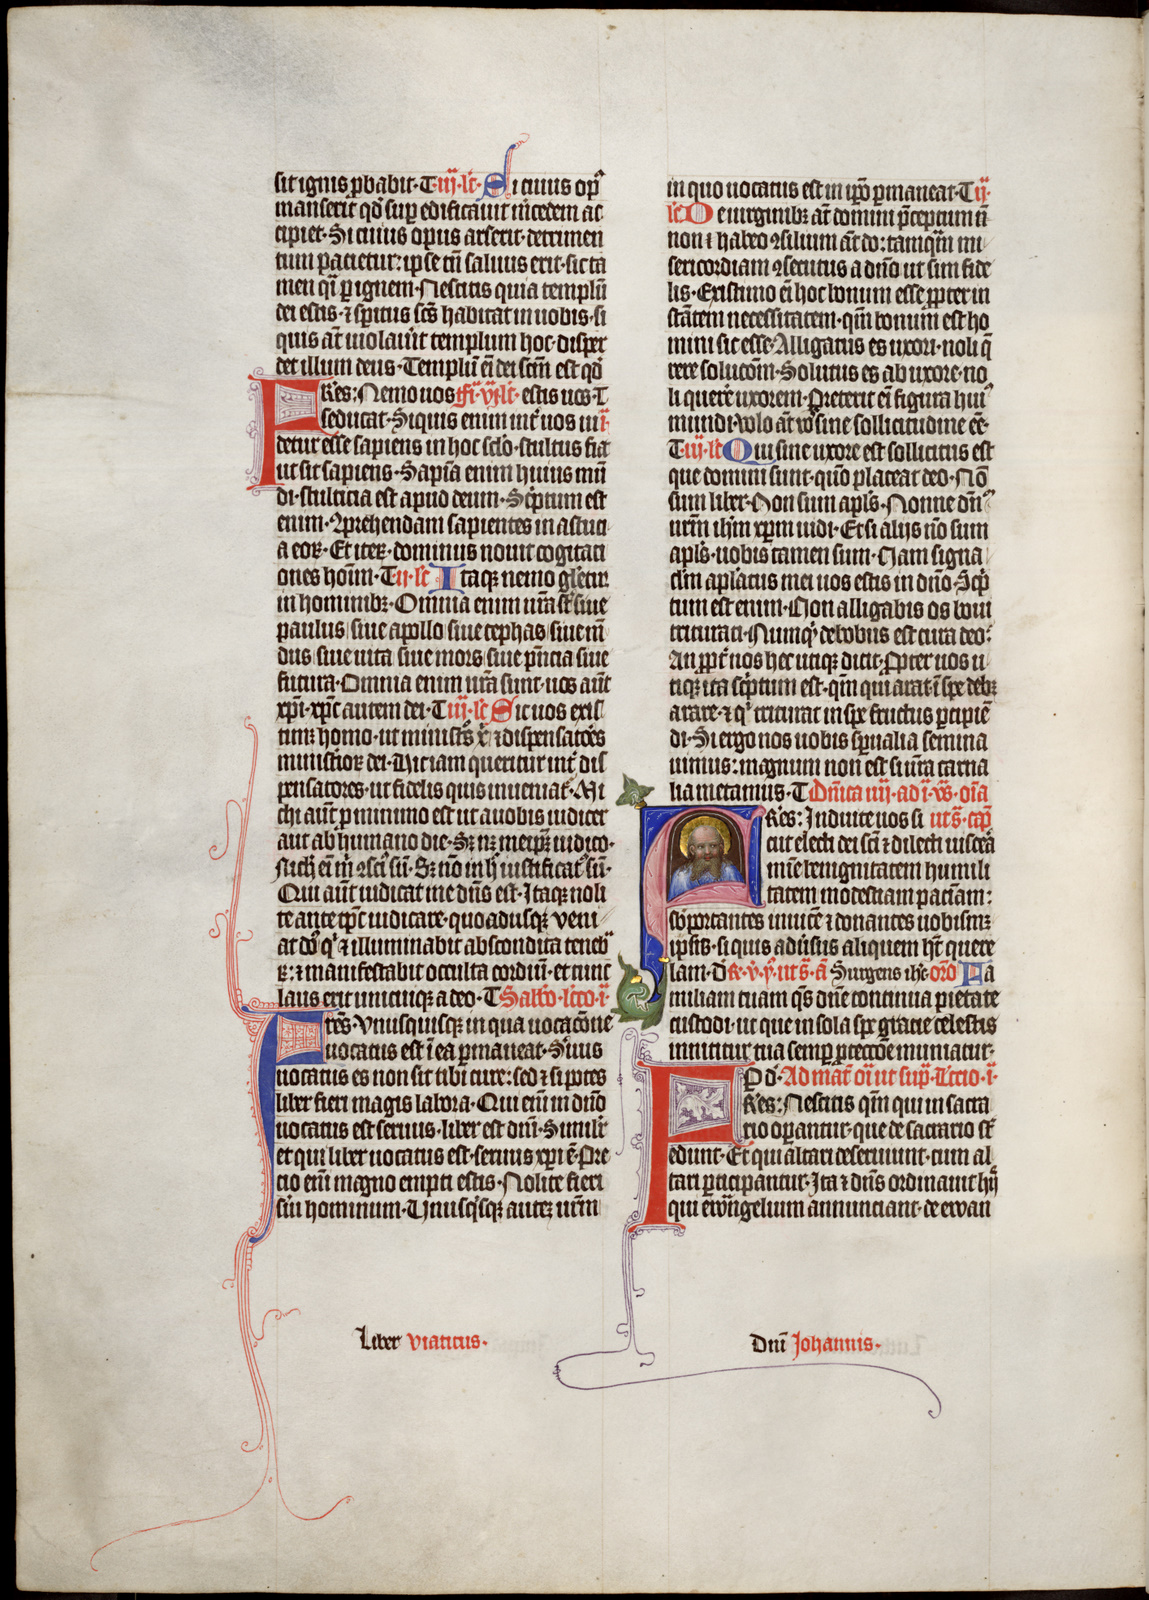 sit ignis ꝓbabit · T iij · lc̄ · Si cuius opꝰ
manserit qd̓ suꝑ edificauit m̓cedem ac
cipiet · Si cuius opus arserit · detrimen
tum pacietur : ip̄e tn̄ saluus erit · sic ta
men qͥ ꝑ ignem · Nescitis quia templū
dei estis · ⁊ sp̄itus sc̄s habitat in uobis · si
quis āt uiolau̓it templum hoc · disper
det illum deus · Templū eī dei sc̄m est qd̓
Rēs : Nemo uos estis uos · T
seducat · Si quis enim int̓ uos ui
detur esse sapiens in hoc sc̄lo · stultus fiat
ut sit sapiens · Sap̄ia enim huius mū
di · stulticia est apud deum · Sc̓ptum est
enim · Ap̄rehendam sapientes in astuci
a eoꝝ · Et iteꝝ · dominus nouit cogitati
ones hoīm · T ij · lc̄ Itaqꝫ nemo gl̄etur
in hominibꝫ · Omnia enim ur̄a st̄ siue
paulus siue apollo siue cephas siue mū
dus siue uita siue mors siue p̄ncia siue
futura · Omnia enim ur̄a sunt · uos aūt
xp̄i · xp̄c autem dei · T iij · lc̄ Sic uos exis
timꝫ homo · ut minist̓os xͥ ⁊ dispensatōes
minist̓ioꝝ dei · Hic iam queritur int̓ dis
pensatores · ut fidelis quis inueniat᷑ · Mi
chi aūt ꝓ minimo est ut a uobis iudicer
aut ab humano die · Sꝫ nꝫ meip̄ꝫ iudico ·
Nich̓ eī m̓ ꝯsci᷒ sū · Sꝫ nō in h̓ iustificat᷒ sū ·
Qui aūt iudicat me dn̄s est · Itaqꝫ noli
te ante tp̄c iudicare · quoadusqꝫ veni
at dō qͥ ⁊ illuminabit abscondita teneb
ꝝ : ⁊ manifestabit occulta cordiū · et tunc
laus erit unicuiqꝫ a deo · T Sabb̓o · lc̄co · i ·
Frēs · Vnusquisqꝫ in qua uocac̄one
uocatus est ī ea ꝑmaneat · S̓uus
uocatus es non sit tibi cure : sed ⁊ si potes
liber fieri magis labora · Qui eīm in dn̄o
uocatus est seruus · liber est dnī · Simil̓r
et qui liber uocatus est · seruus xp̄i ē · Pre
cio eīm magno empti estis · Nolite fieri
s̓ui hominum · Vnusqͥsqꝫ autē ur̄m
in quo uocatus est in ip̄o ꝑmaneat · T ij ·
lc̄ De uirginibꝫ āt domini p̄ceptum n̄
non ⁊ habeo ꝯsilium āt do : tamqꝫ̄m mi
sericordiam ꝯsecutus a dn̄o ut sim fide
lis · Existimo eī hoc bonum esse ꝓpter in
stātem necessitatem · qm̄ bonum est ho
mini sic esse · Alligatus es uxori · noli q̄
rere solucōm · Solutus es ab uxore · no
li quere uxorem · Preterit eī figura hui᷒
mundi · Volo āt vos sine sollicitudine eē ·
T iij · lc̄ Qui sine uxore est sollicitus est
que domini sunt · quō placeat deo · Nō
sum liber · Non sum apl̄s · Nonne dn̄m
ur̄m ih̄m xp̄m uidi · Et si alijs nō sum
apl̄s · uobis tamen sum · Nam signa
cl̄m apl̄atus mei uos estis in dn̄o · Sc̓p
tum est enim · Non alligabis os boui
trituranti · Numqͥd de bobus est cura deo ·
An ꝓpt̓ nos hec utiqꝫ dicit · Ꝓpter nos u
tiqꝫ ita sc̓ptum est · qm̄ qui arat ī spe debꝫ
arare · ⁊ qͥ triturat in spe fructus ꝑcipiē
di · Si ergo nos uobis sp̄ualia semina
uimus : magnum non est si ur̄a carna
lia metamus · T Dn̄ica iiij · ad i · vv̄ · oīa
Frēs : Induite uos si ut s̄ · cap̄
cut electi dei sc̄i ⁊ dilecti uiscēa
mīe benignitatem humili
tatem modestiam paciam :
sb̓portantes inuicē ⁊ donantes uobismꝫ
ip̄sis · si quis adu̓sus aliquem hꝫ quere
lam · D R · v · ꝟ · ut s̄ · ā Surgens ih̄c · orō Fa
miliam tuam q̄s dn̄e continua pietate
custodi · ut que in sola spe gracie celestis
innititur tua semꝑ ꝓteccōe muniatur ·
P d · Ad mat̓ oī ut sup̄ · lc̄cio · i ·
Frēs : Nescitis qm̄ qui in sacra
rio oꝑantur · que de sacrario st̄
edunt · Et qui altari deseruiunt · cum al
tari ꝑticipantur · Ita ⁊ dn̄s ordinauit hijs
qui ewangelium annunciant · de ewan
Liber viaticus ·
Dnī Johannis ·